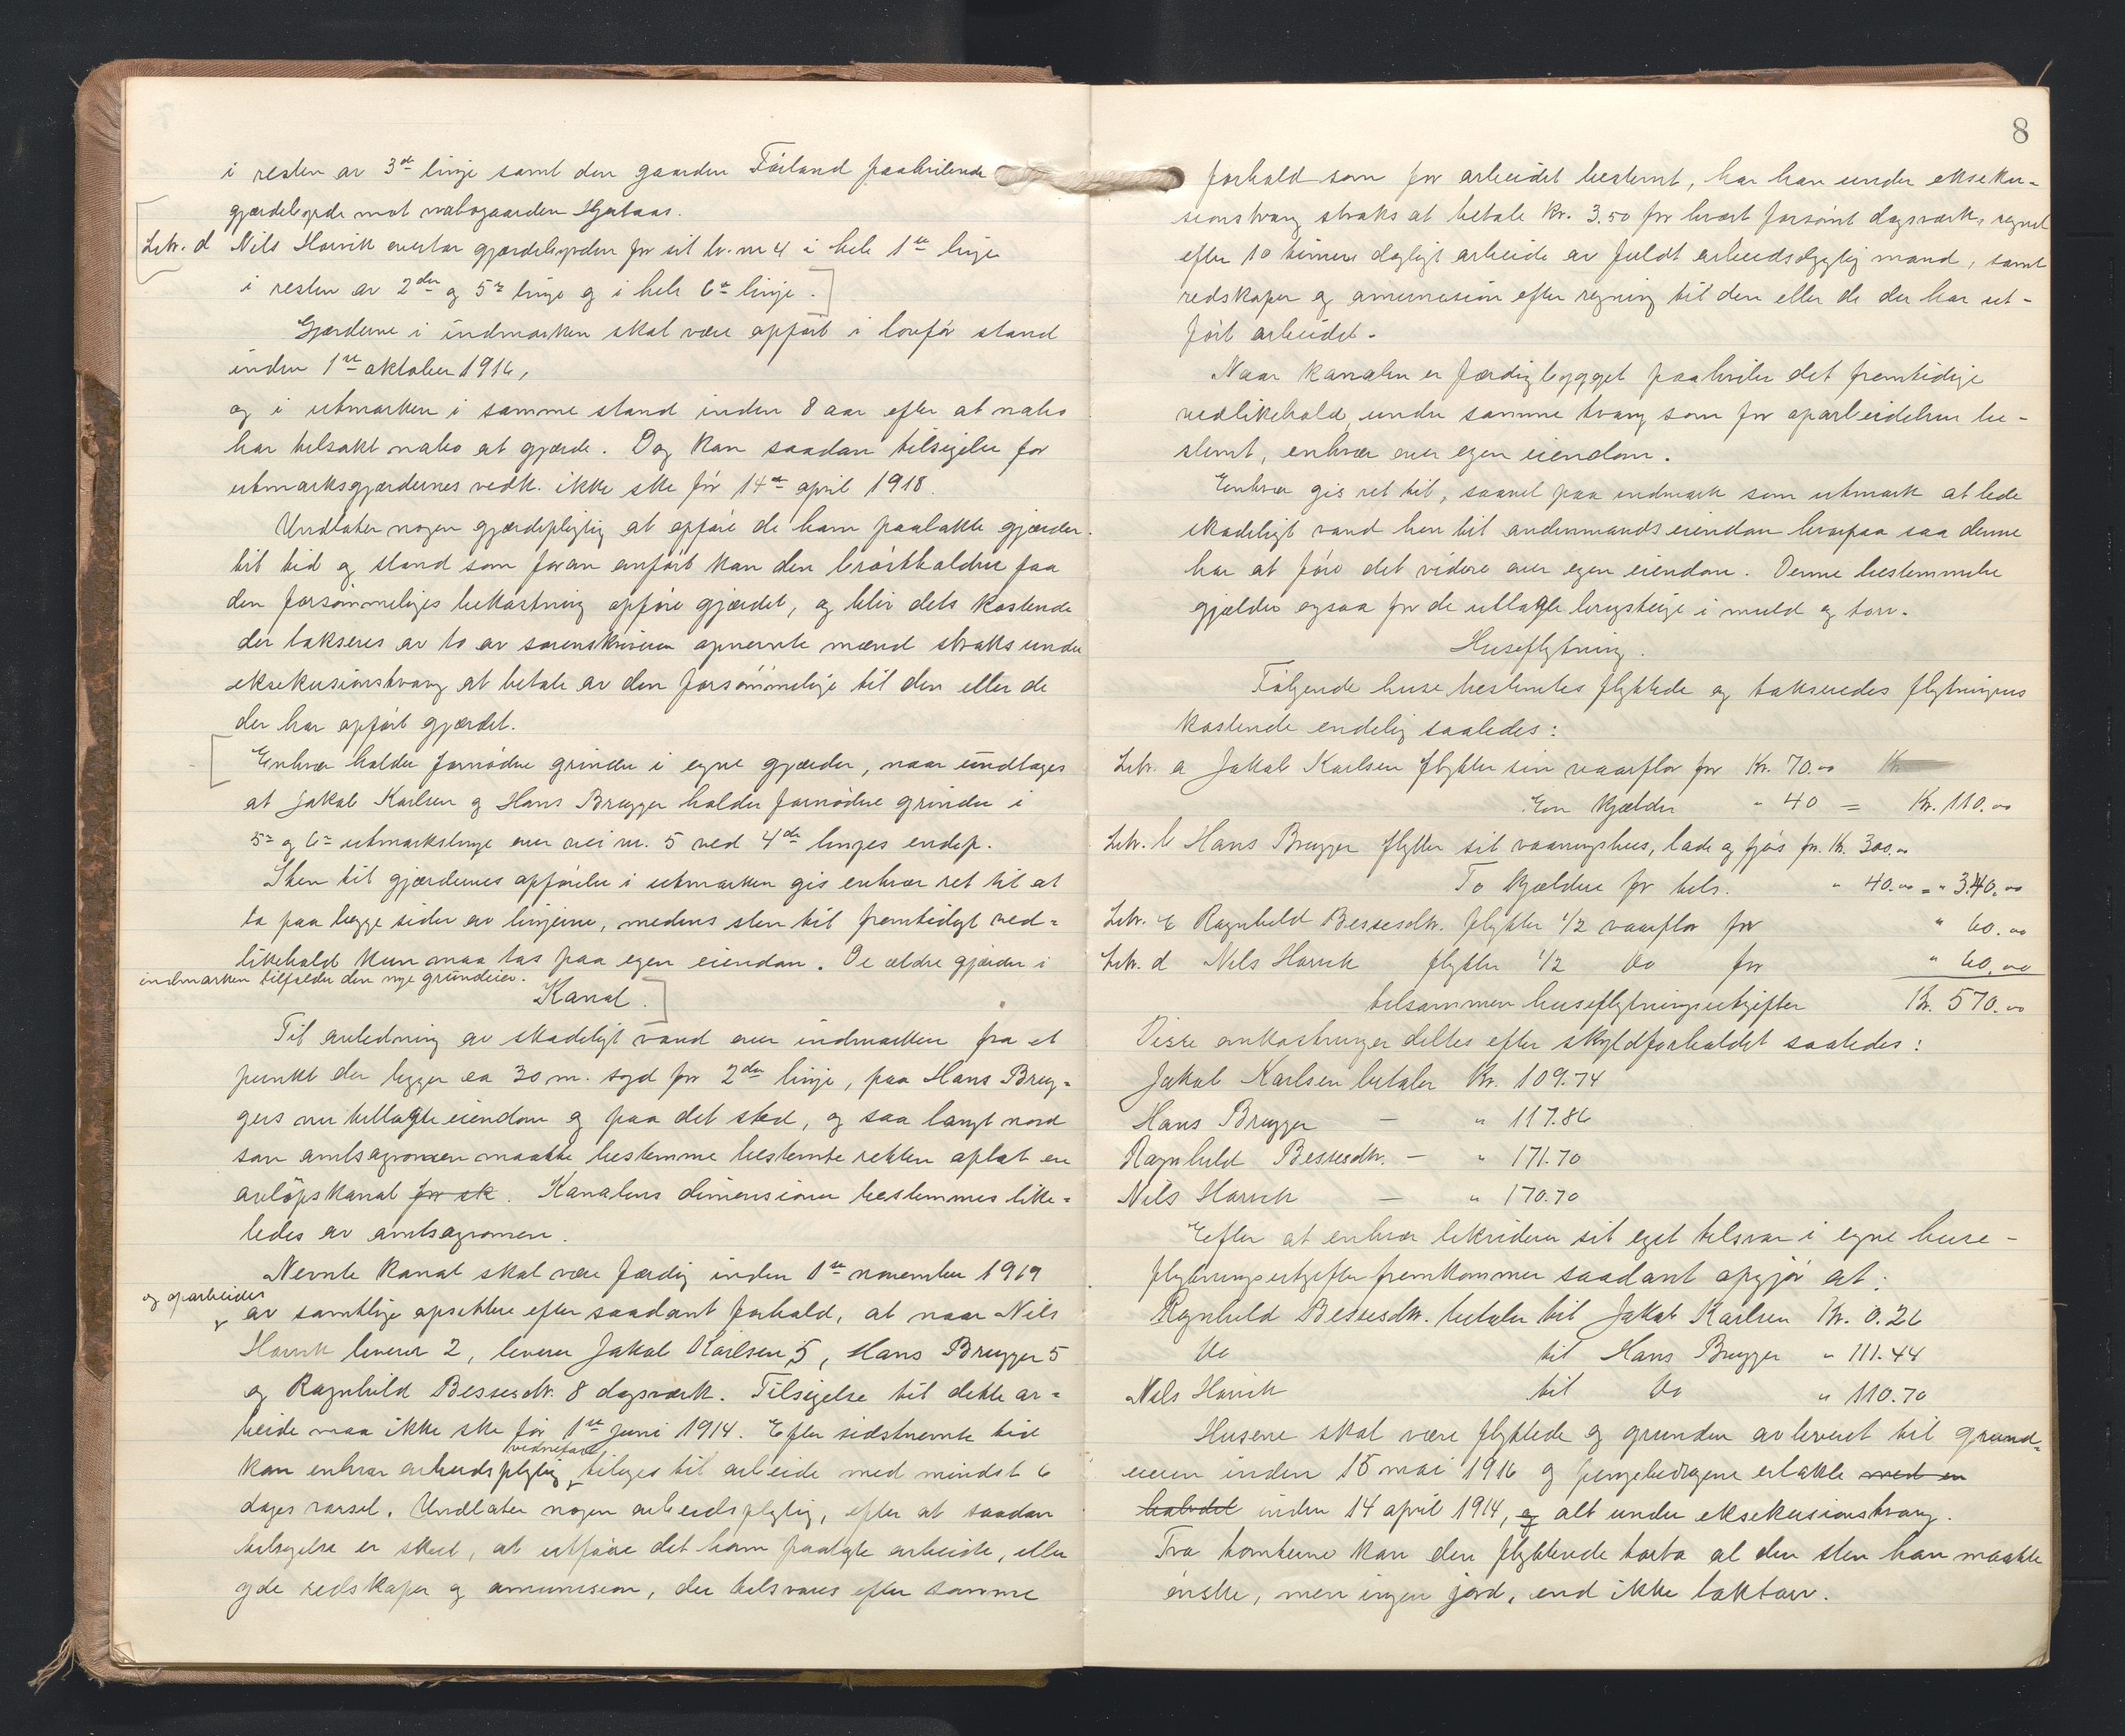 i resten av 3de linje samt den gaarden Førland paahvilende
gjærdebyrde mot nabogaarden Hjertaas.
Litr. d Nils Horvik overtar gjærdebyrden for sit br. nr 4 i hele 1ste linje
i resten av 2den og 5te linje og i hele 6te linje.
Gjærderne i indmarken skal være opført i lovfør stand
inden 1ste oktober 1916,
og i utmarken i samme stand inden 8 aar efter at nabo
har tilsakt nabo at gjærde. Dog kan saadan tilsigelse for
utmarksgjærdernes vedk. ikke ske før 14de april 1918.
Undlater nogen gjærdepligtig at opføre de ham paalakte gjærder
til tid og stand som foran anført kan den brøstholdne faa
den forsømmeliges bekostning opføre gjærdet, og blir dets kostende
der takseres av to av sorenskriveren opnevnte mænd straks under
eksekusionstvang at betale av den forsømmelige til den eller de
der har opført gjærdet.
Enhver holder fornødne grinder i egne gjærder, naar undtages
at Jakob Karlsen og Hans Brygger holder fornødne grinder i
5te og 6te utmarkslinje over vei nr. 5 ved 4de linjes endep.
Sten til gjærdernes opførelse i utmarken gis enhver ret til at
ta paa begge sider av linjerne, medens sten til fremtidigt ved=
likehold kun maa tas paa egen eiendom. De ældre gjærder i
indmarken tilfalder den nye grundeier.
Kanal.
Til avledning av skadeligt vand over indmarken fra et
punkt der ligger ca 30 m. syd for 2den linje, paa Hans Bryg=
gers nu tillagte eiendom og paa det sted, og saa langt nord
som amtsagronomen maatte bestemme bestemte retten oplat en
avløpskanal for sk. Kanalens dimensioner bestemmes like=
ledes av amtsagronomen.
Nevnte kanal skal være færdig inden 1ste november 1919
og oparbeides
av samtlige opsittere efter saadant forhold, at naar Nils
Horvik leverer 2, leverer Jakob Karlsen 5, Hans Brygger 5
og Ragnhild Bessesdtr. 8 dagsværk. Tilsigelse til dette ar=
beide maa ikke ske før 1ste juni 1914. Efter sidstnevnte tid
kan enhver arbeidspligtig tilsiges til arbeide med mindst 6
dages varsel. Undlater nogen arbeidspligtig, efter at saadan
tilsigelse er skeet, at utføre det ham paalagte arbeide, eller
yde redskaper og amunision, der tilsvares efter samme
8
forhold som for arbeidet bestemt, har han under ekseku=
sionstvang straks at betale kr. 3.50 for hvert forsømt dagsværk, regnet
efter 10 timers dagligt arbeide av fuldt arbeidsdygtig mand, samt
redskaper og amunision efter regning til den eller de der har ut-
ført arbeidet.
Naar kanalen er færdigbygget paahviler det fremtidige
vedlikehold, under samme tvang som for oparbeidelsen be-
stemt, enhver over egen eiendom.
Enhver gis ret til, saavel paa indmark som utmark at lede
skadeligt vand hen til andenmands eiendom hvorpaa saa denne
har at føre det videre over egen eiendom. Denne bestemmelse
gjælder ogsaa for de utlagte brugsteige i muld og torv.
Huseflytning.
Følgende huse bestemtes flyttede og takseredes flytningens
kostende endelig saaledes:
Litr. a Jakob Karlsen flytter sin vaarflor for Kr. 70.00 Kr.
En kjælder " 40 = Kr. 110.00
Litr. b Hans Brygger flytter sit vaaningshus, lade og fjøs for Kr. 300.00
To kjældere for tils. " 40.00 = " 340.00
Litr. c Ragnhild Bessesdtr. flytter 1/2 vaarflor for " 60.00
Litr. d Nils Horvik flytter 1/2 do for " 60.00
tilsammen huseflytningsutgifter Kr. 570.00
Disse omkostninger deltes efter skyldforholdet saaledes:
Jakob Karlsen betaler Kr. 109.74
Hans Brygger — " 117.86
Ragnhild Bessesdtr. — " 171.70
Nils Horvik — " 170.70
Efter at enhver likviderer sit eget tilsvar i egne huse-
flytningsutgifter fremkommer saadant opgjør at:
Ragnhild Bessesdtr. betaler til Jakob Karlsen Kr. 0.26
do til Hans Brygger " 111.44
Nils Horvik til do " 110.70
Husene skal være flyttede og grunden avleveret til grund=
eieren inden 15 mai 1916 og pengebidragene erlakte med en
halvdel inden 14 april 1914, og alt under eksekusionstvang.
Fra tomterne kan den flyttende bortta al den sten han maatte
ønske, men ingen jord, end ikke taktorv.